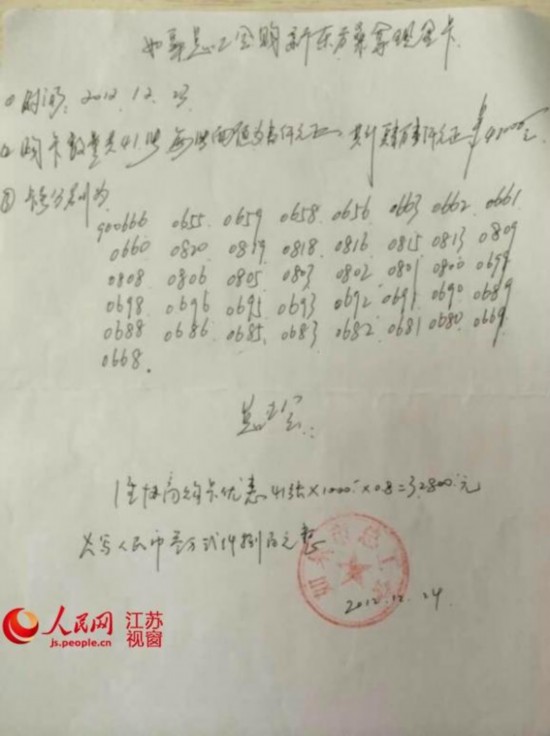 如皋总工会购新东方桑拿现金卡
① 时间: 2012.12.23
② 购卡数量共41张 每张面值为壹仟元正、共计肆万壹仟元正 41000元
③ 卡号分别为
900666 0655. 0659 0658. 0656 0663 0662. 0661
0660 0820 0819 0818. 0816 0815 0813 0809
0808 0806 0805 0803 0802 0801 0800 0699
0698. 0696 0695 0693 0692 0691 0690 0689
0688 0686 0685. 0683 0682. 0681 0680 0669
0668.
总工会:
经协商 卡优惠 41张×1000×0.8=32800元
大写人民币叁万贰仟捌百元整
如皋市总工会
2012.12.24
人民网 江苏视窗
js.people.cn